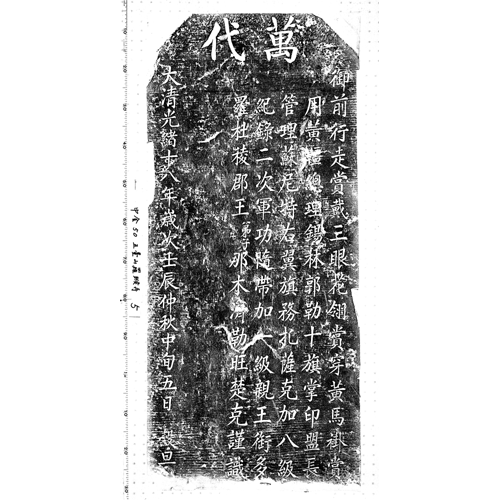 萬代
御前行走賞戴三眼花翎賞穿黃馬褂賞
用黃韁總理錫林郭勒十旗掌印盟長
管理蘇尼特右翼旗務扎薩克加八級
紀錄二次軍功隨帶加一級親王銜多
羅杜稜郡王弟子那木濟勒旺楚克謹識
大清光緒十八年歲次壬辰仲秋中旬五日 穀旦
5